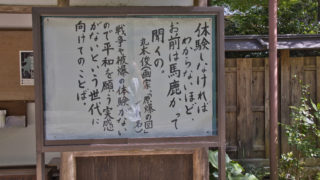 体験しなければ
わからないほど、
お前は馬鹿かって
聞くの。
丸木俊(画家「原爆の図」
戦争や被爆の体験がない
ので平和を願う実感
がないという世代に
向けてのことば。